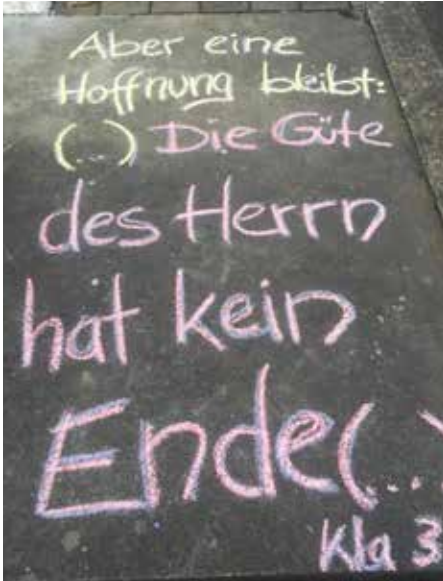 Aber eine
Hoffnung bleibt:
(...) Die Güte
des Herrn
hat kein
Ende (...)
Kla 3